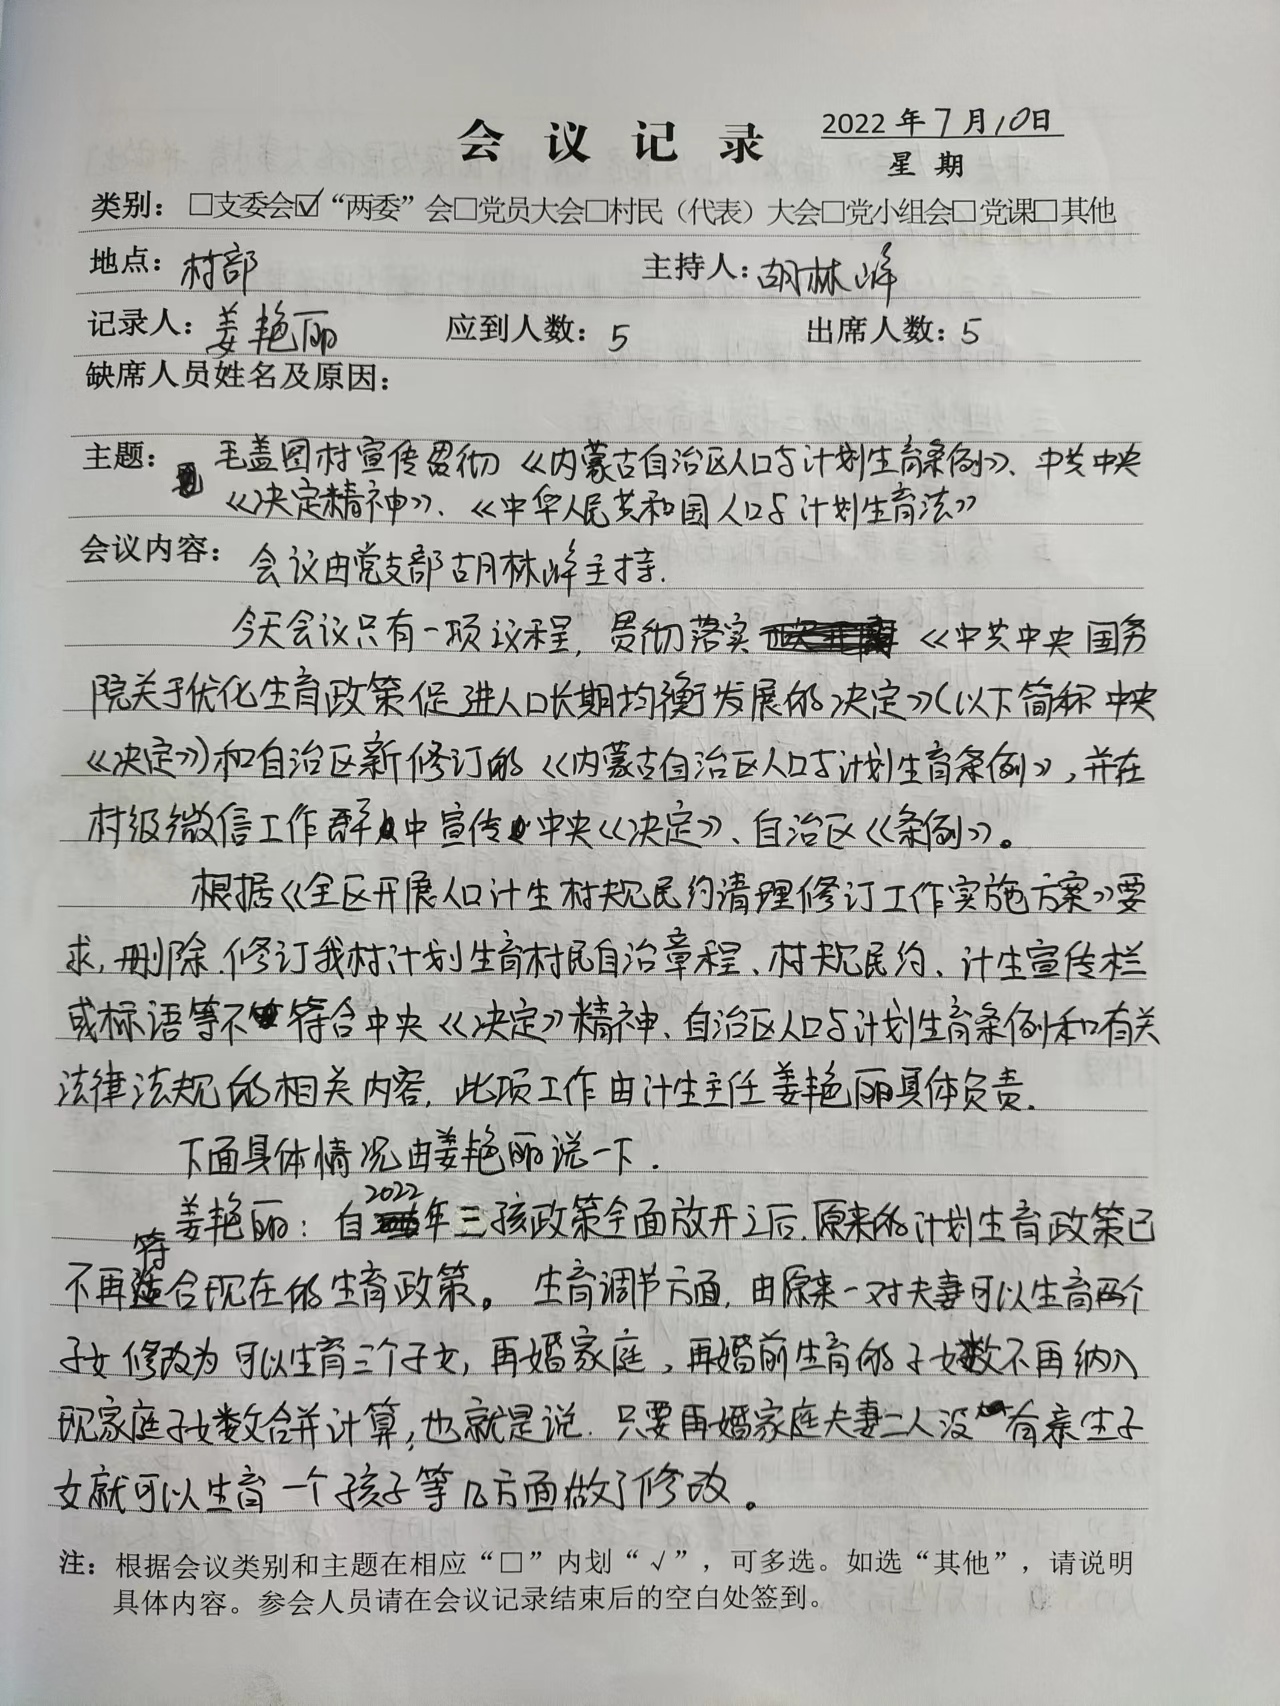 会议记录 2022年7月10日
星期
类别：□支委会☑“两委”会□党员大会□村民（代表）大会□党小组会□党课□其他
地点：村部 主持人：胡林峰
记录人：姜艳丽 应到人数：5 出席人数：5
缺席人员姓名及原因：
主题：毛盖图村宣传贯彻《内蒙古自治区人口与计划生育条例》、中共中央
《决定精神》、《中华人民共和国人口与计划生育法》
会议内容：会议由党支部胡林峰主持.
今天会议只有一项议程，贯彻落实《中共中央国务
院关于优化生育政策促进人口长期均衡发展的决定》（以下简称中央
《决定》）和自治区新修订的《内蒙古自治区人口与计划生育条例》，并在
村级微信工作群中宣传中央《决定》、自治区《条例》。
根据《全区开展人口计生村规民约清理修订工作实施方案》要
求，删除.修订我村计划生育村民自治章程、村规民约、计生宣传栏
或标语等不符合中央《决定》精神、自治区人口与计划生育条例和有关
法律法规的相关内容，此项工作由计生主任姜艳丽具体负责.
下面具体情况由姜艳丽说一下.
姜艳丽：自2022年三孩政策全面放开之后，原来的计划生育政策已
不再符合现在的生育政策。生育调节方面，由原来一对夫妻可以生育两个
子女修改为可以生育三个子女，再婚家庭，再婚前生育的子女数不再纳入
现家庭子女数合并计算，也就是说.只要再婚家庭夫妻二人没有亲生子
女就可以生育一个孩子等几方面做了修改。
注：根据会议类别和主题在相应“□”内划“√”，可多选。如选“其他”，请说明
具体内容。参会人员请在会议记录结束后的空白处签到。